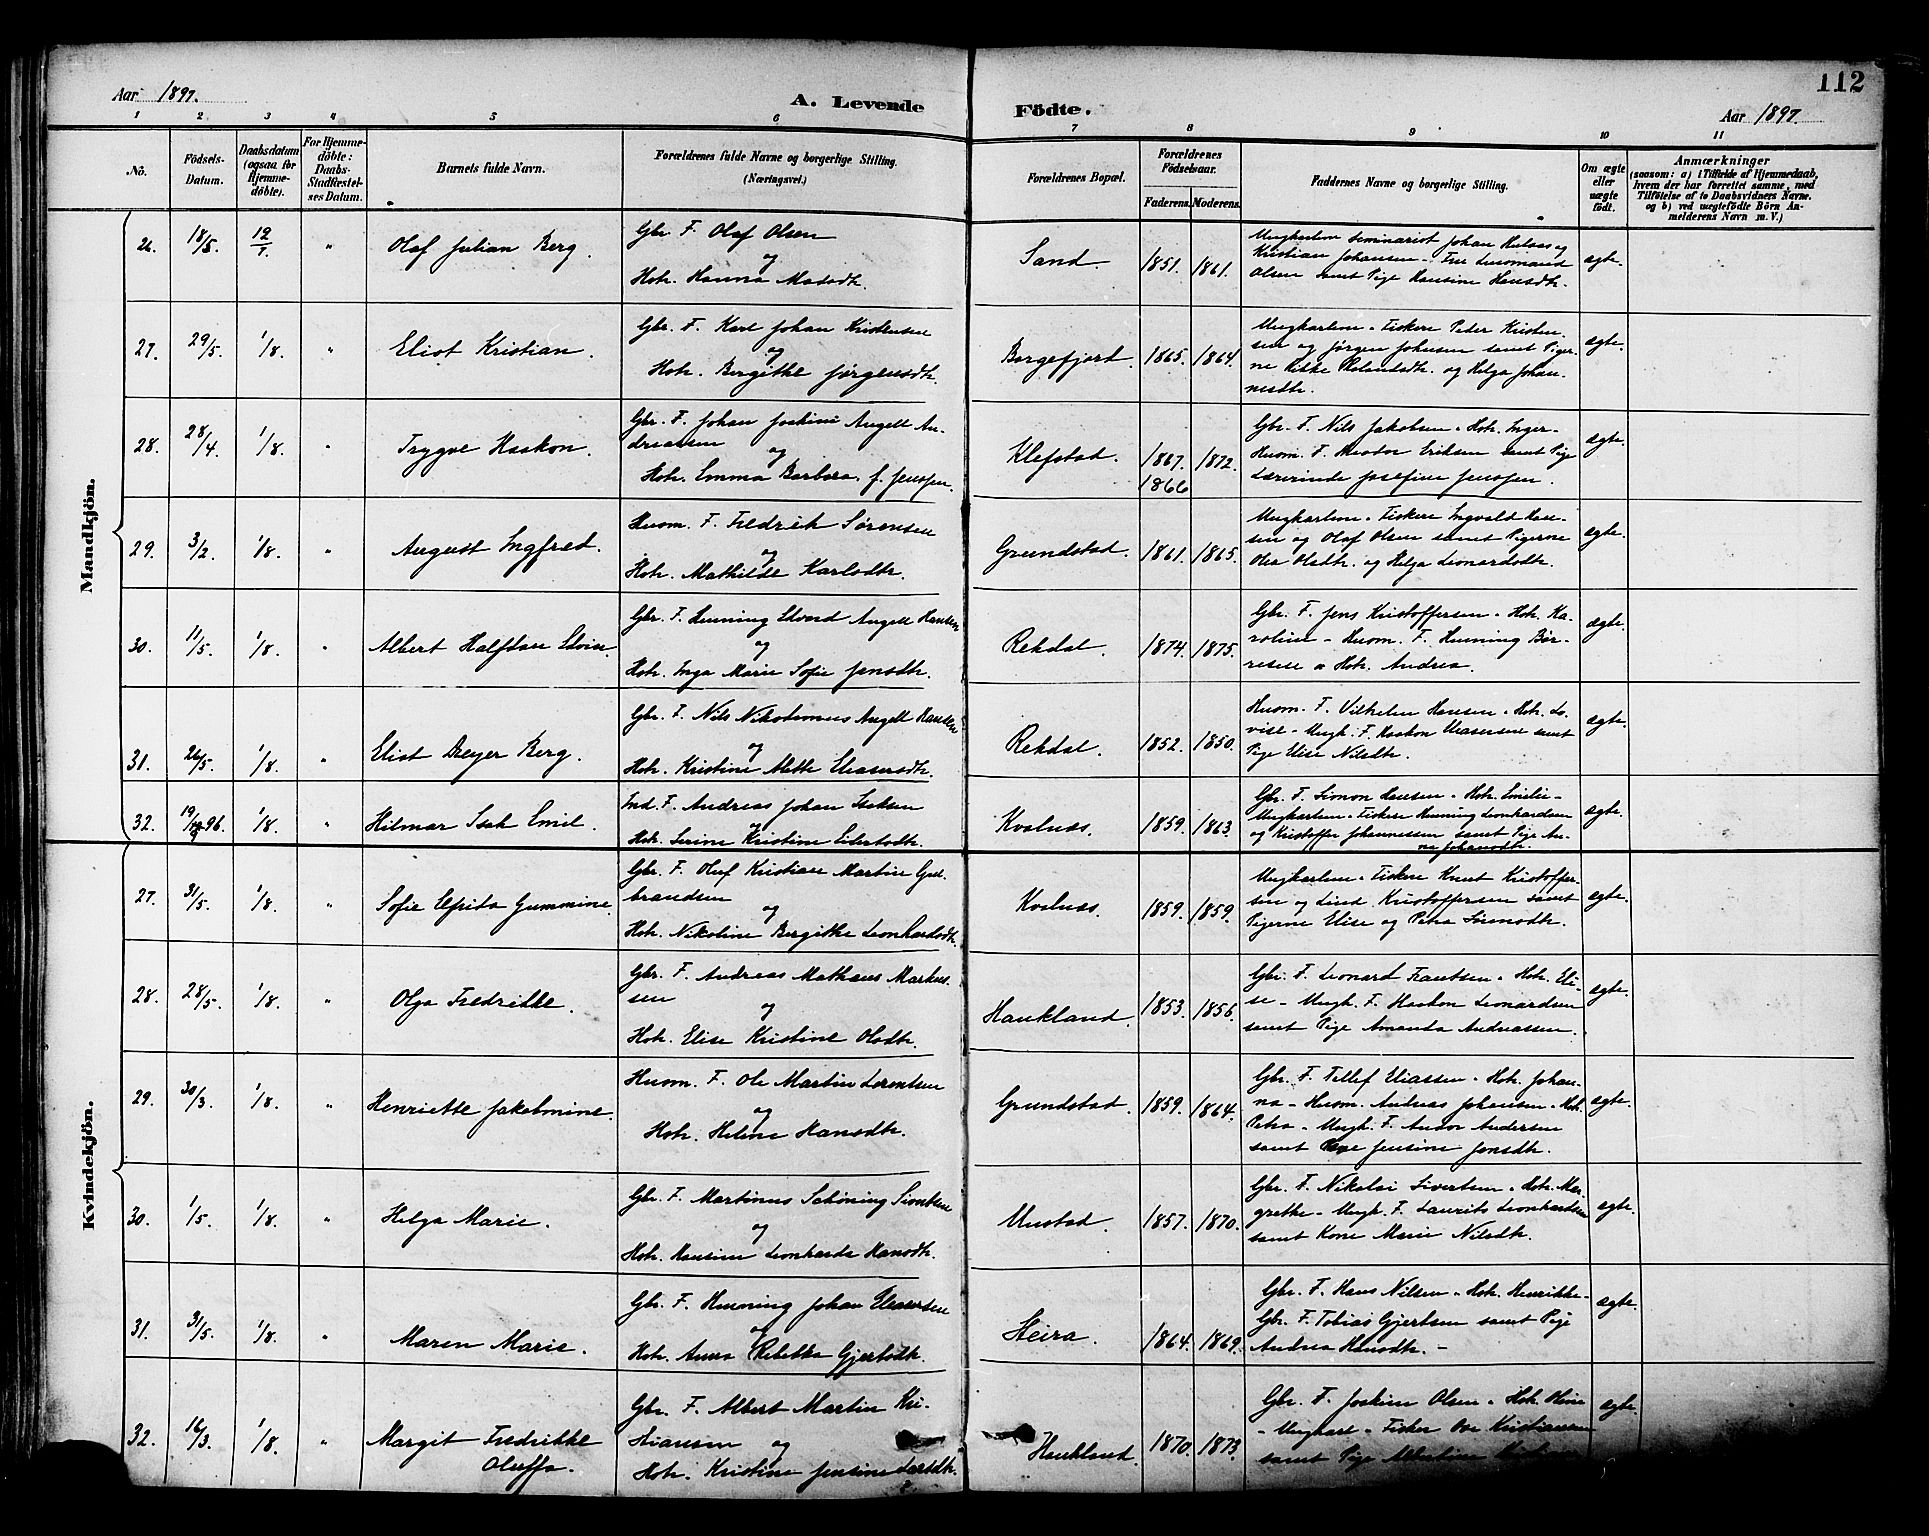 112
Aar 1897.
A. Levende Födte.
Aar 1897.
1 2 3 4 5 6 7 8 9 10 11
No.
Födsels-Datum.
Daabsdatum (ogsaa for Hjemme-döbte).
For Hjemme-döbte: Daabs-Stadfæstel-ses Datum.
Barnets fulde Navn.
Forældrenes fulde Navne og borgerlige Stilling.
(Næringsvei.)
Forældrenes Bopæl.
Forældrenes Födselsaar.
Faderens. Moderens.
Faddernes Navne og borgerlige Stilling.
Om ægte eller uægte födt.
Anmærkninger
(saasom: a) i Tilfælde af Hjemmedaab,
hvem der har forrettet samme, med
Tilföielse af to Daabsvidners Navne.
og b) ved uægtefödte Börn An-
melderens Navn m. V.)
Mandkjön.
26. 18/5. 12/7 " Olaf Julian Berg.
Gbr. F. Olaf Olsen
og
Hstr. Hanna Madsdtr.
Sand. 1851. 1861.
Ungkarlene Seminarist Johan
Kristian Johansen
Olsen samt Pige Hansine Hansdtr.
ægte.
27. 29/5. 1/8. " Eliot Kristian.
Gbr. F. Karl Johan Kristensen
og
Hstr. Bergithe Jørgensdtr.
Borgefjord. 1865. 1864.
Ungkarlene Fiskere Peder Kristen-
sen og Jørgen Johnsen samt Piger-
ne Rikke og Helga Johan-
nesdtr.
ægte.
28. 28/4. 1/8. " Trygve Haakon.
Gbr. F. Johan Joakim Angell An-
dreassen
og
Hstr. Emma Barbara f. Jenssen.
Klefstad. 1867. 1872.
1866
Gbr. F. Nils Jakobsen Hstr. Inger-
Husm. F. Eriksen samt Pige
Lærerinde Josefine Jenssen.
ægte.
29. 3/2. 1/8. " August Ingfred.
Husm. F. Fredrik Sørensen
og
Hstr. Mathilde Karlsdtr.
Grundstad. 1861. 1865.
Ungkarlene Fiskere Ingvald Han-
sen og Olaf Olsen samt Pigerne
Olsdtr. og Helga Leonardsdtr.
ægte.
30. 11/5. 1/8. " Albert Halfdan Edvin.
Gbr. F. Henning Edvard Angell Hansen
og
Hstr. Inga Marie Sofie Jensdtr.
Rekdal. 1874. 1875.
Gbr. F. Jens Kristoffersen Hstr. Ka-
roline - Husm. F. Henning Bør-
resen Hstr. Andrea.
ægte.
31. 26/5. 1/8. " Eliot Dreyer Berg.
Gbr. F. Nils Nikodemus Angell Hansen
og
Hstr. Kristine Mette Eliasersdtr.
Rekdal. 1852. 1850.
Husm. F. Vilhelm Hansen Hstr. Lo-
vise - Ungk. F. Haakon samt
Pige Elise Nilsdtr.
ægte.
32. 19/ 96. 1/8. " Hilmar Emil.
Ind. F. Andreas Johan
og
Hstr. Serine Kristine Eilertsdtr.
Kvalnæs. 1859. 1863.
Gbr. F. Simon Hansen Hstr. Emilie -
Ungkarlene Fiskere Henning Leonhardsen
og Kristoffer Johannessen samt Pige An-
na Johansdtr.
ægte.
Kvindekjön.
27. 31/5. 1/8. " Sofie Gummine.
Gbr. F. Oluf Kristian Martin Gul-
brandsen
og
Hstr. Nikoline Bergithe Leonhardsdtr.
Kvalnæs. 1859. 1859.
Ungkarlene Fiskere Knut Kristoffer-
sen og Kristoffersen samt
Pigerne Elise og Petra Simonsdtr.
ægte.
28. 28/5. 1/8. " Olga Fredrikke.
Gbr. F. Andreas Mathæus Markus-
sen
og
Hstr. Elise Kristine Olsdtr.
Haukland. 1853. 1856.
Gbr. F. Leonard Frantsen Hstr. Eli-
se - Ungk. F. Haakon Leonardsen
samt Pige Amanda Andreassen.
ægte.
29. 30/3. 1/8. " Henriette Jakobmine.
Husm. F. Ole Martin Lorentsen
og
Hstr. Heline Hansdtr.
Grundstad. 1859. 1864.
Gbr. F. Tellef Eliassen Hstr. Johan-
na - Husm. Andreas Johansen Hstr.
Petra - Ungk. F. Anton Andersen
samt Pige Jensine Jensdtr.
ægte.
30. 1/5. 1/8. " Helga Marie.
Gbr. F. Martinus Schøning Sivertsen
og
Hstr. Hansine Leonharda Hansdtr.
Unstad. 1857. 1870.
Gbr. F. Nikolai Sivertsen Hstr. Mar-
grethe - Ungk. F. Laurits Leonhardsen
samt Kone Marie Nilsdtr.
ægte.
31. 31/5. 1/8. " Maren Marie.
Gbr. F. Henning Johan Eliasersen
og
Hstr. Anna Rebekka Gjertsdtr.
Steira. 1864. 1869.
Gbr. F. Hans Nilsen Hstr. Henrikke -
Gbr. F. Tobias Gjertsen samt Pige
Andrea Hansdtr. -
ægte.
32. 16/3. 1/8. " Margit Fredrikke
Oluffa.
Gbr. F. Albert Martin Kri-
stiansen og
Hstr. Kristine Jensine Larsdtr.
Haukland. 1870. 1873.
Gbr. F. Joakim Olsen Hstr.
- Ungkarl - Fisker Ove Kristiansen
samt Pige
ægte.